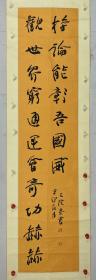 持論能彰吾國威
觀世界窮通運會奇功赫赫